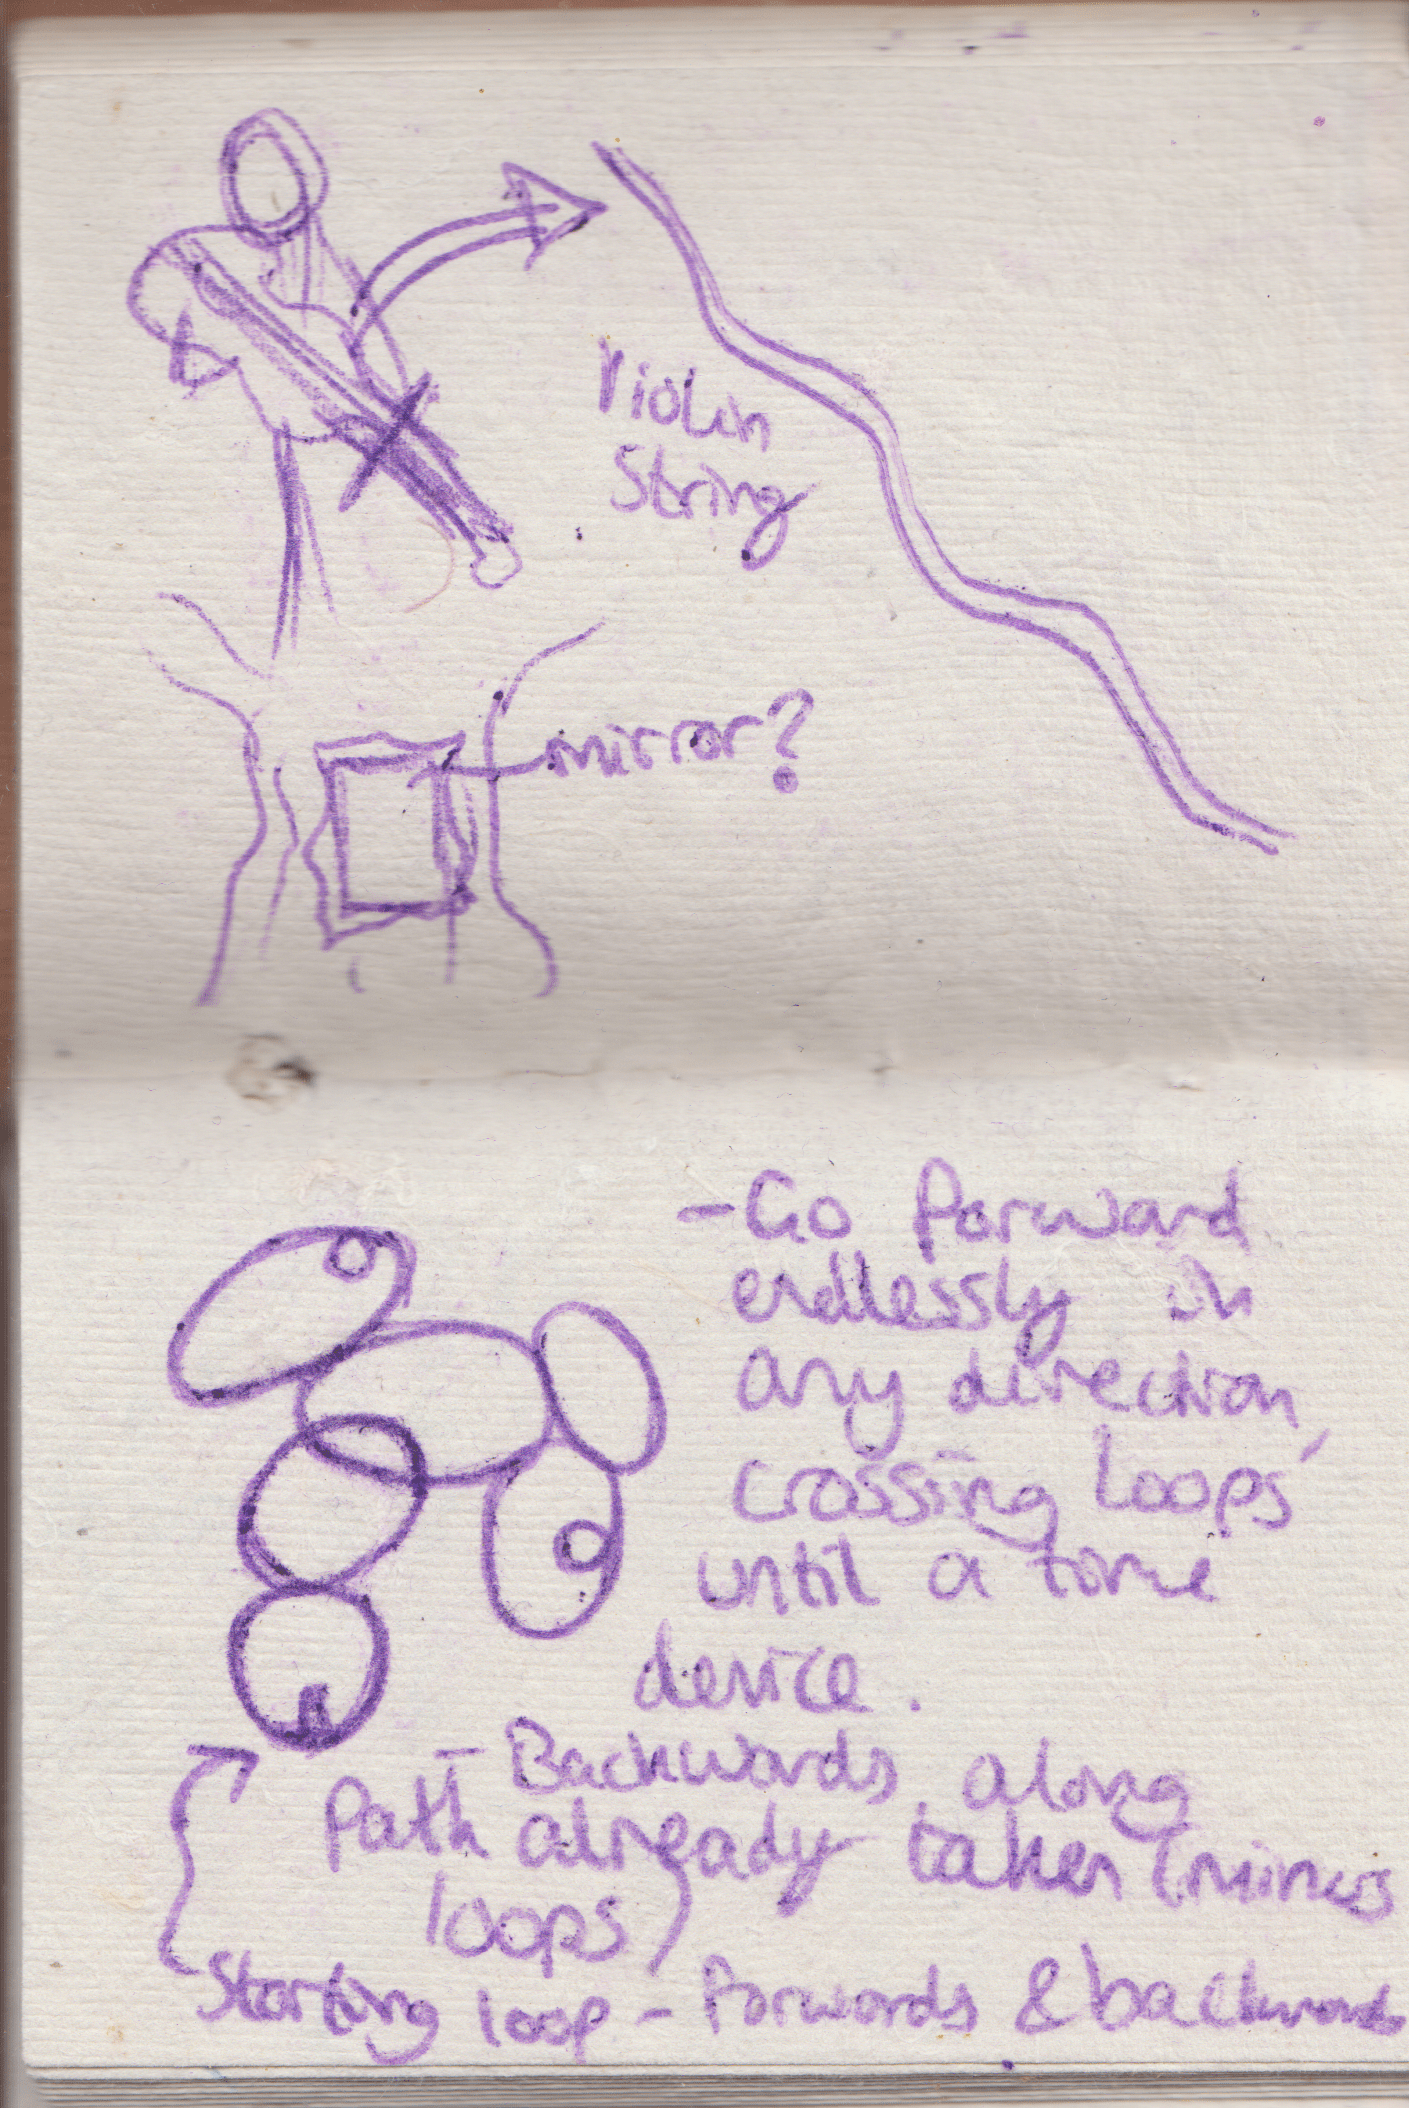 Violin
String
mirror?
- Go forward
endlessly in
any direction,
crossing loops
until a time
device.
- Backwards along
path already taken (minus
loops)
Starting loop - forwards & backwards